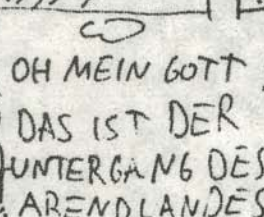 OH MEIN GOTT
DAS IST DER
UNTERGANG DES
ABENDLANDES